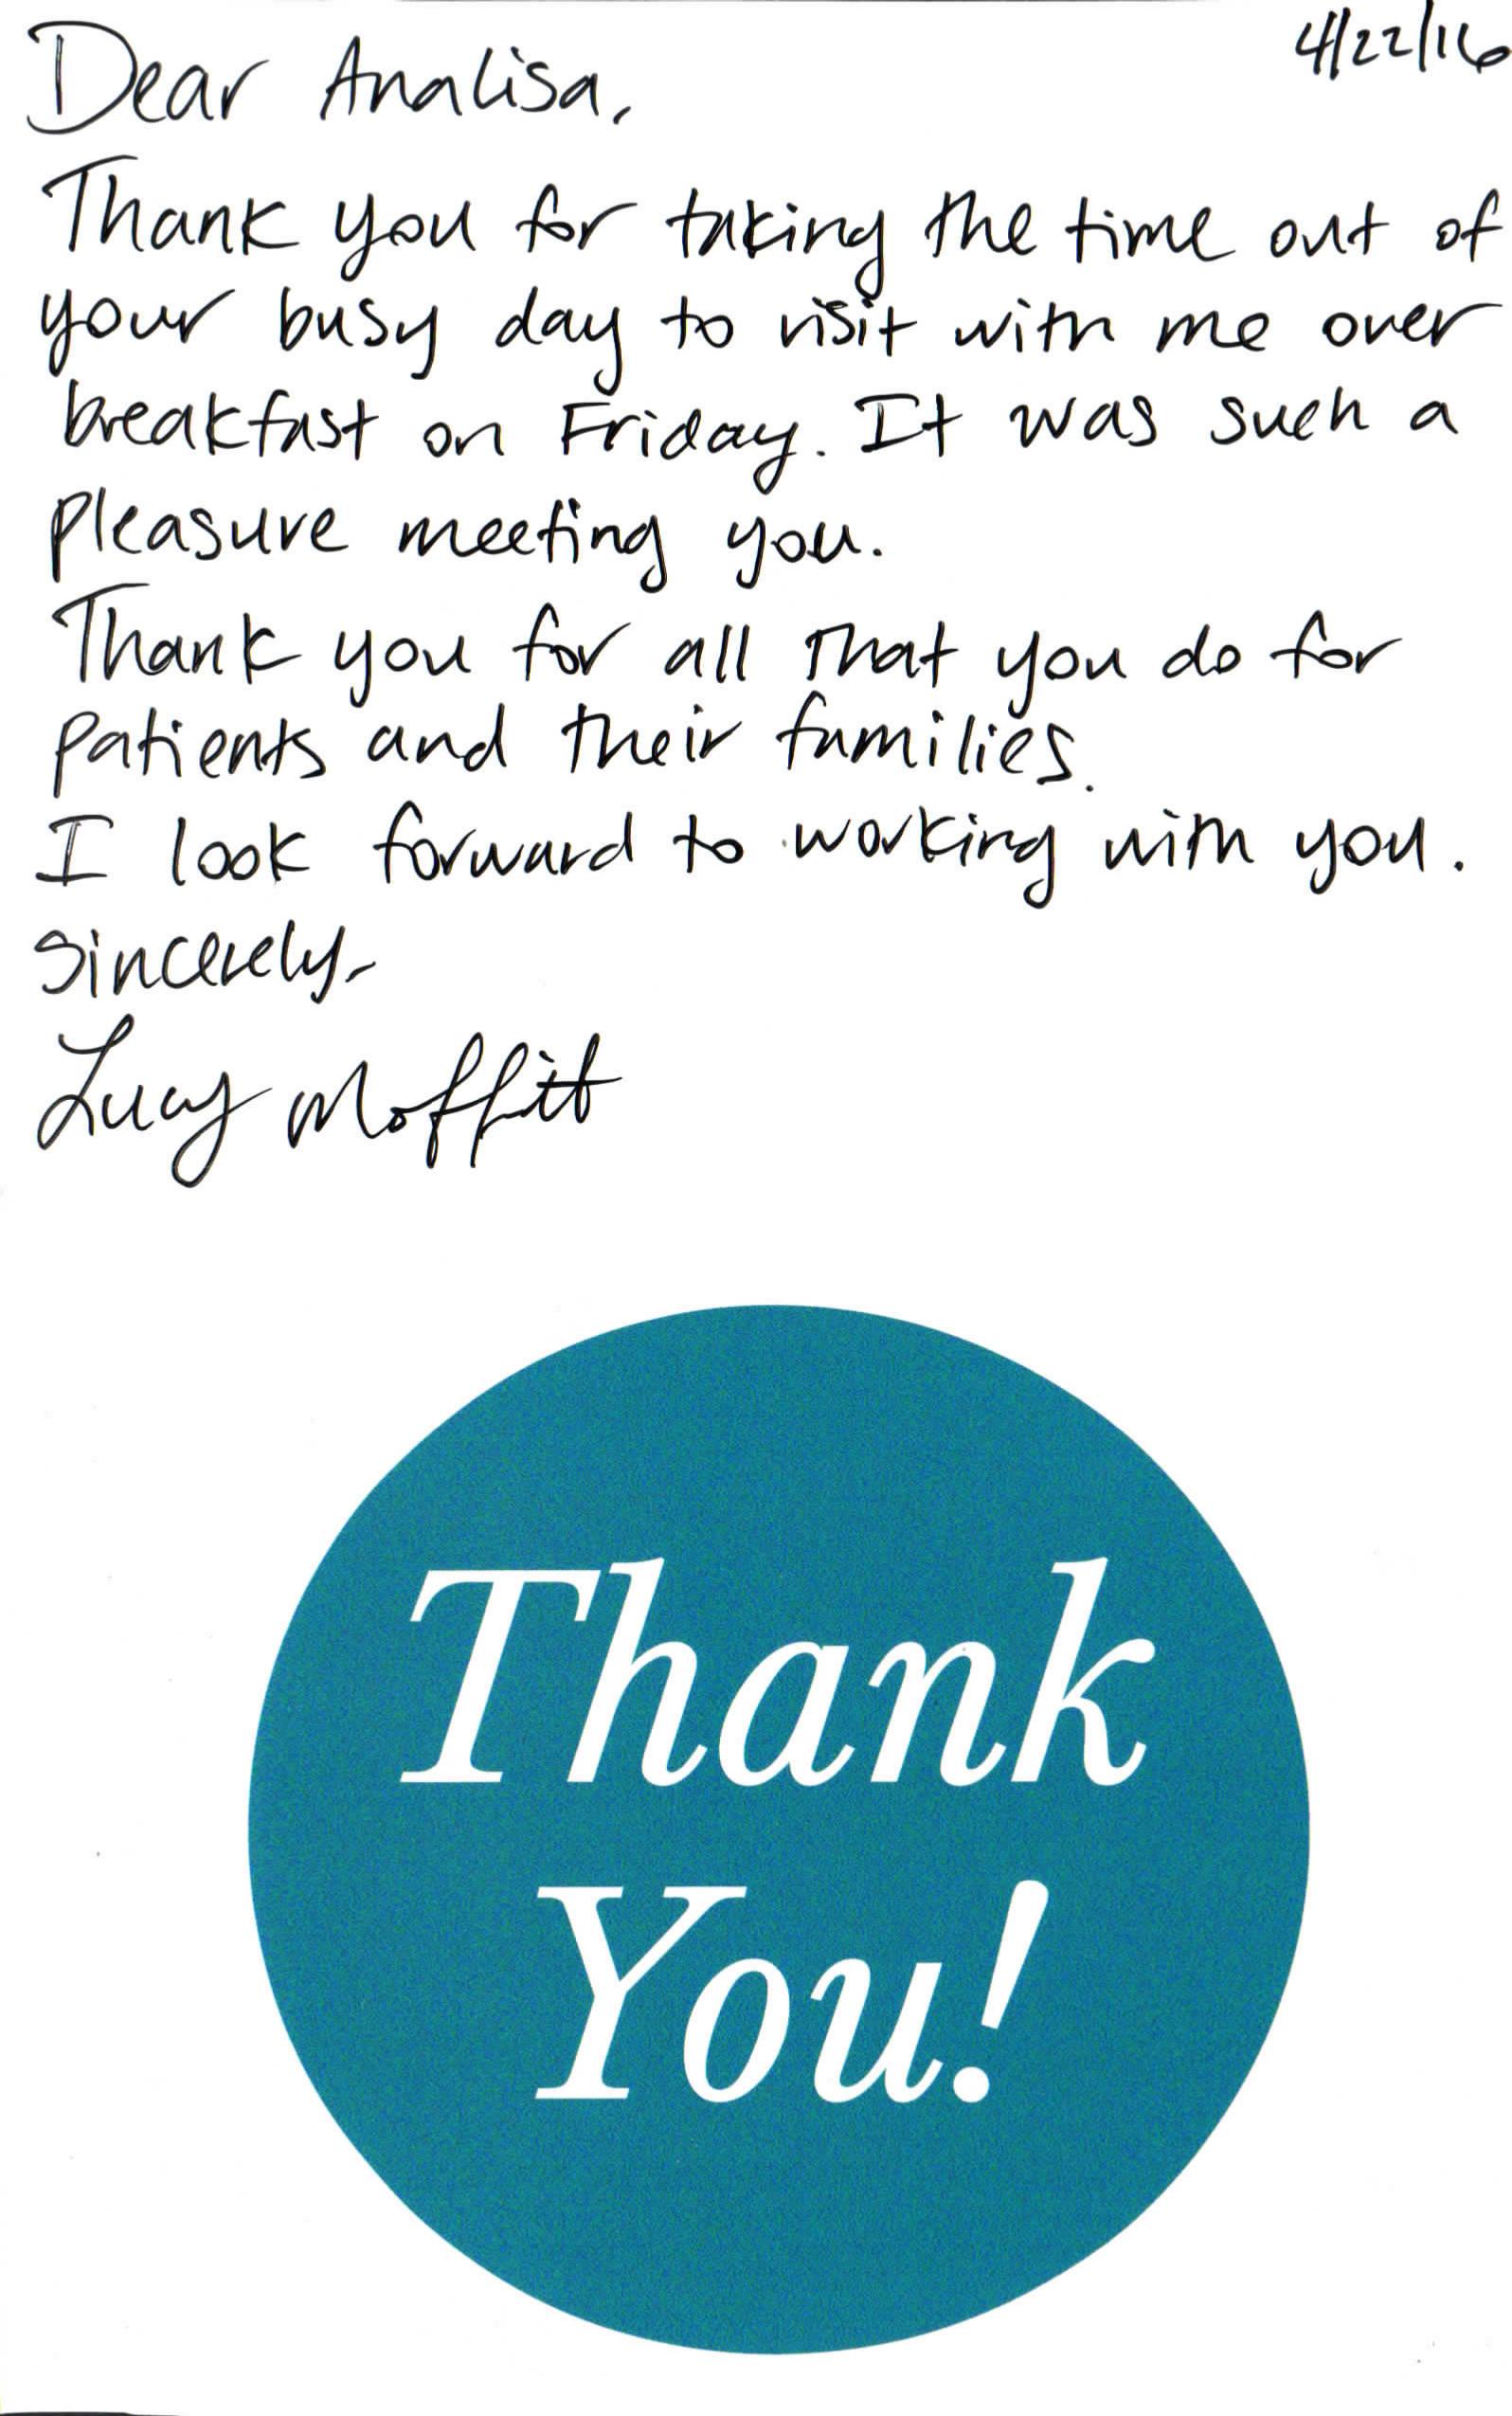 4/22/16
Dear Analisa,
Thank you for taking the time out of
your busy day to visit with me over
breakfast on Friday. It was such a
pleasure meeting you.
Thank you for all that you do for
patients and their families.
I look forward to working with you.
Sincerely-
Lucy Moffitt
Thank
You!